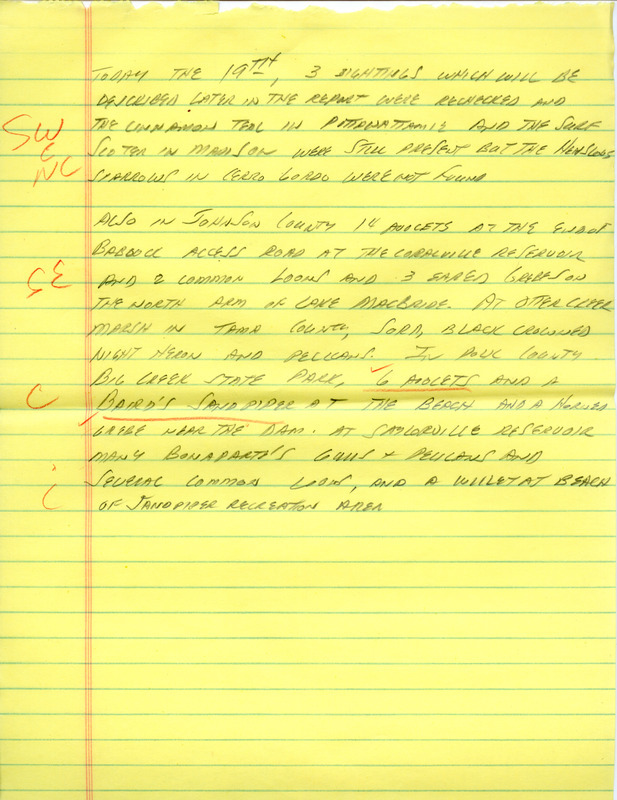 TODAY THE 19TH, 3 SIGHTINGS WHICH WILL BE
DESCRIBED LATER IN THE REPORT WERE RECHECKED AND
SW
THE CINNAMON TEAL IN POTTAWATTAMIE AND THE SURF
E
SCOTER IN MADISON WERE STILL PRESENT BUT THE HENSLOWS
NC
SPARROWS IN CERRO GORDO WERE NOT FOUND
ALSO IN JOHNSON COUNTY 14 AVOCETS AT THE END OF
BABCOCK ACCESS ROAD AT THE CORALVILLE RESERVOIR
SE
AND 2 COMMON LOONS AND 3 EARED GREBES ON
THE NORTH ARM OF LAKE MACBRIDE. AT OTTER CREEK
MARSH IN TAMA COUNTY, SORA, BLACK CROWNED
NIGHT HERON AND PELICANS. IN POLK COUNTY
BIG CREEK STATE PARK, 6 AVOCETS AND A
C
BAIRD'S SANDPIPER AT THE BEACH AND A HORNED
GREBE NEAR THE DAM. AT SAYLORVILLE RESERVOIR
MANY BONAPARTE'S GULLS + PELICANS AND
SEVERAL COMMON LOONS, AND A WILLET AT BEACH
OF SANDPIPER RECREATION AREA